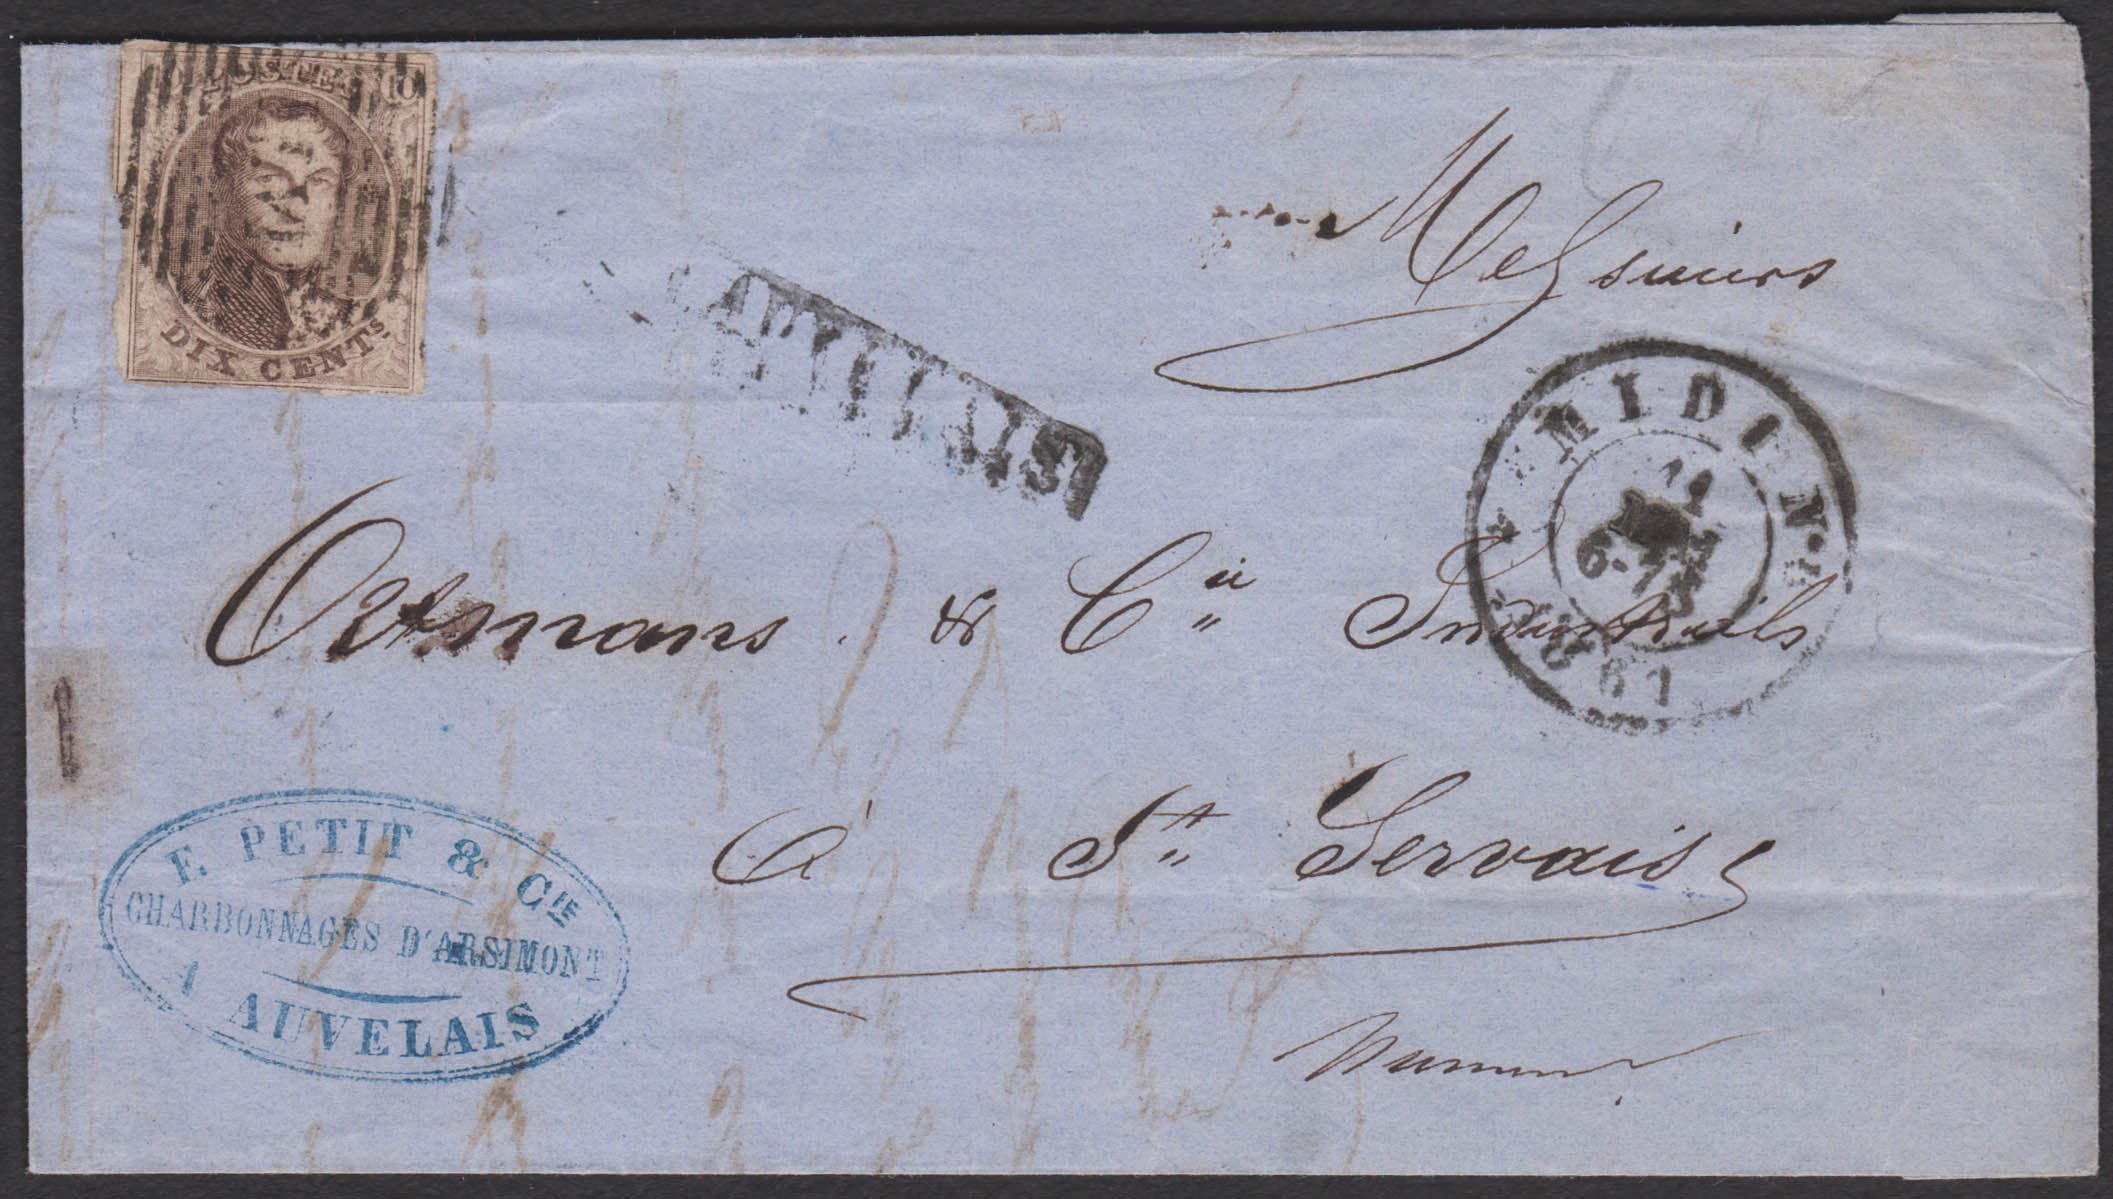 POSTES 10
DIX CENTS.
AUVELAIS
Messieurs
MIDI
11
6-7S
1861
Ortmans & Cie Industriels
à St Servais
E. PETIT & CIE
CHARBONNAGES D'ARSIMONT
A AUVELAIS